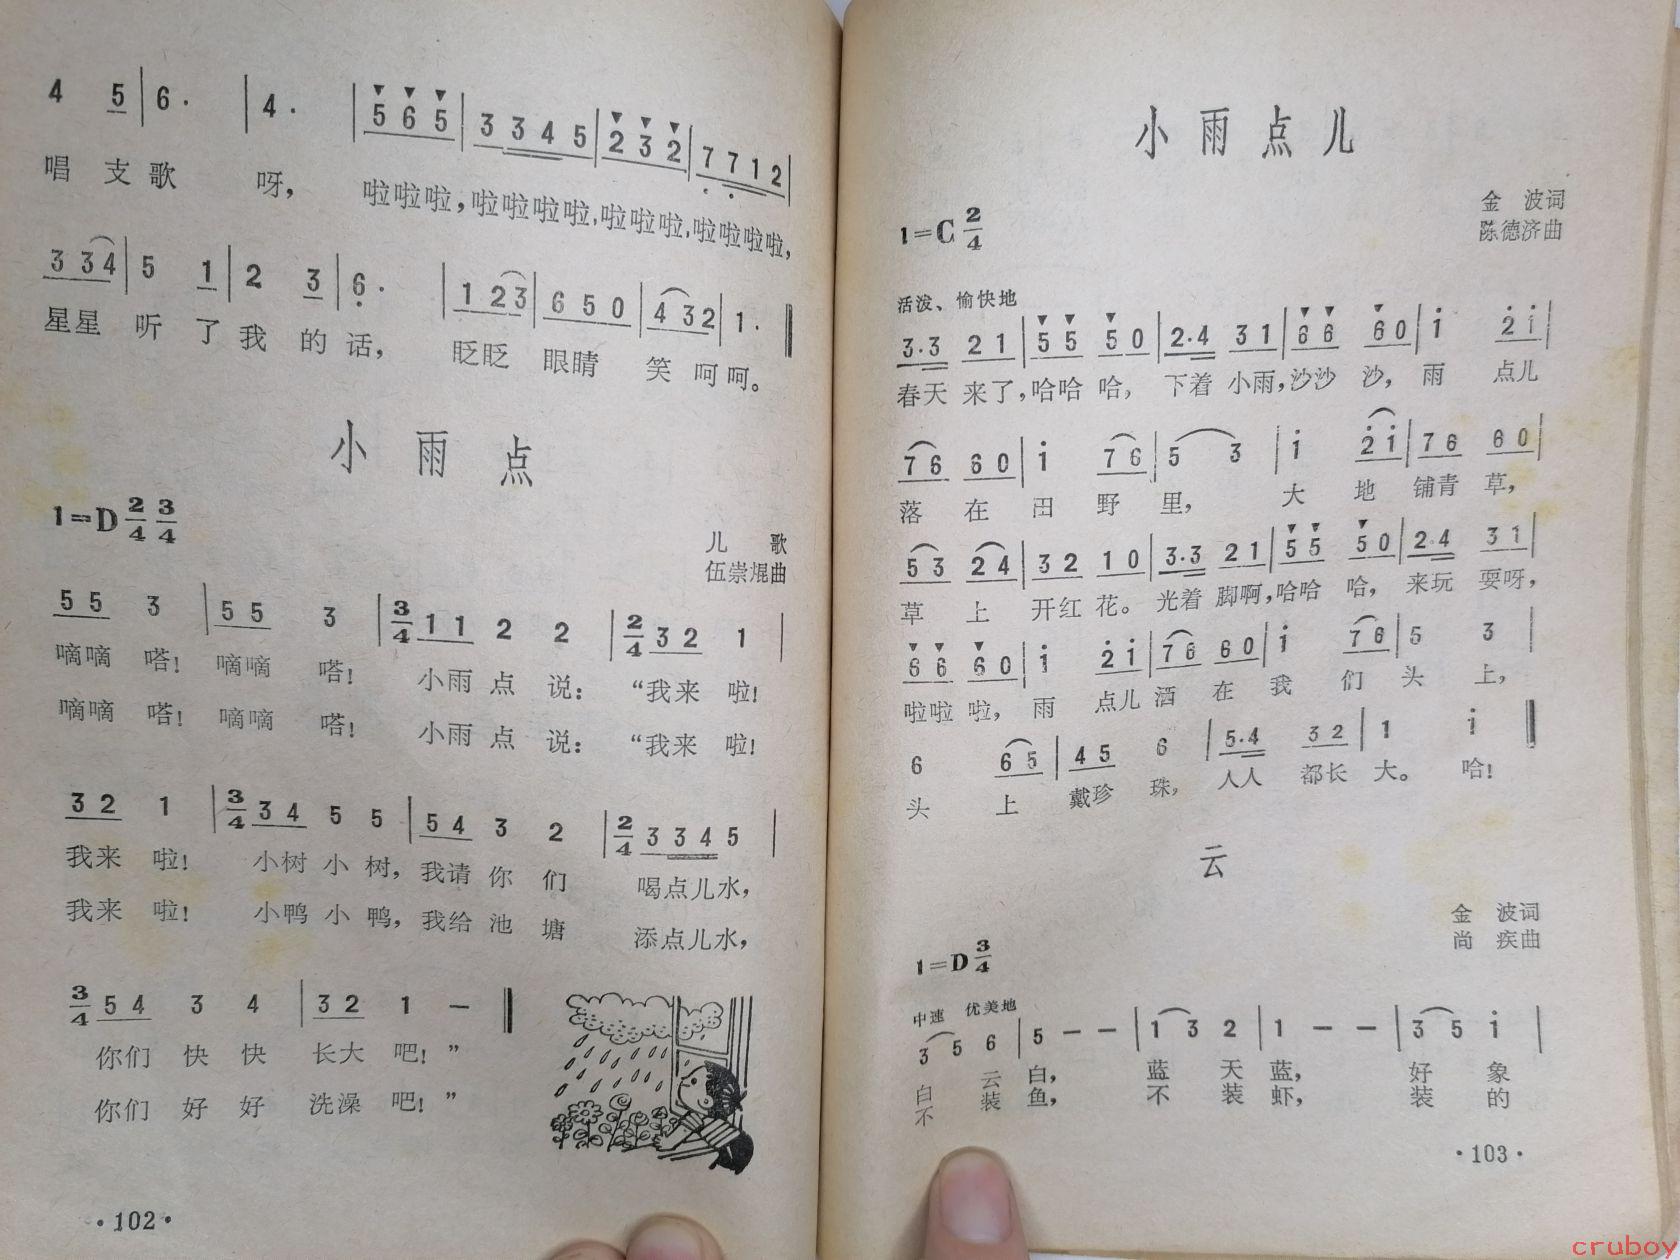 4 5 | 6· | 4· | 5 6 5 | 3 3 4 5 | 2 3 2 | 7 7 1 2 |
唱 支 歌 呀， 啦啦啦，啦啦啦啦，啦啦啦，啦啦啦啦，
3 3 4 | 5 1 | 2 3 | 6· | 1 2 3 | 6 5 0 | 4 3 2 | 1· ‖
星星 听 了 我 的 话， 眨眨 眼睛 笑 呵呵。
小雨点
1=D 2/4 3/4
儿 歌
伍崇焜曲
5 5 3 | 5 5 3 | 3/4 1 1 2 2 | 2/4 3 2 1 |
嘀嘀 嗒！ 嘀嘀 嗒！ 小雨 点 说： “我来 啦！
嘀嘀 嗒！ 嘀嘀 嗒！ 小雨 点 说： “我来 啦！
3 2 1 | 3/4 3 4 5 5 | 5 4 3 2 | 2/4 3 3 4 5 |
我来 啦！ 小树 小 树，我请 你 们 喝点儿水，
我来 啦！ 小鸭 小 鸭，我给 池 塘 添点儿水，
3/4 5 4 3 4 | 3 2 1 — ‖
你们 快 快 长大 吧！”
你们 好 好 洗澡 吧！”
·102·
小雨点儿
金 波词
陈德济曲
1=C 2/4
活泼、愉快地
3·3 2 1 | 5 5 5 0 | 2·4 3 1 | 6 6 6 0 | i 2 i |
春天 来了，哈哈 哈， 下着 小雨，沙沙 沙， 雨 点儿
7 6 6 0 | i 7 6 | 5 3 | i 2 i | 7 6 6 0 |
落 在 田 野 里， 大 地 铺青 草，
5 3 2 4 | 3 2 1 0 | 3·3 2 1 | 5 5 5 0 | 2·4 3 1 |
草 上 开红 花。 光着 脚啊，哈哈 哈， 来玩 耍呀，
6 6 6 0 | i 2 i | 7 6 6 0 | i 7 6 | 5 3 |
啦啦 啦， 雨 点儿 洒 在 我 们 头 上，
6 6 5 | 4 5 6 | 5·4 3 2 | 1 i ‖
头 上 戴珍 珠， 人人 都长 大。 哈！
云
金 波词
尚 疾曲
1=D 3/4
中速 优美地
3 5 6 | 5 — — | 1 3 2 | 1 — — | 3 5 i |
白 云 白， 蓝 天 蓝， 好 象
不 装 鱼， 不 装 虾， 装 的
·103·
cruboy